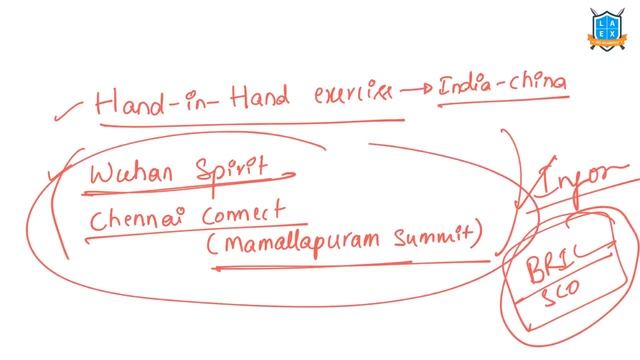 Hand-in-Hand exercise → India-china
Wuhan Spirit
Chennai Connect
(Mamallapuram Summit)
BRIC
SCO
LA
EX